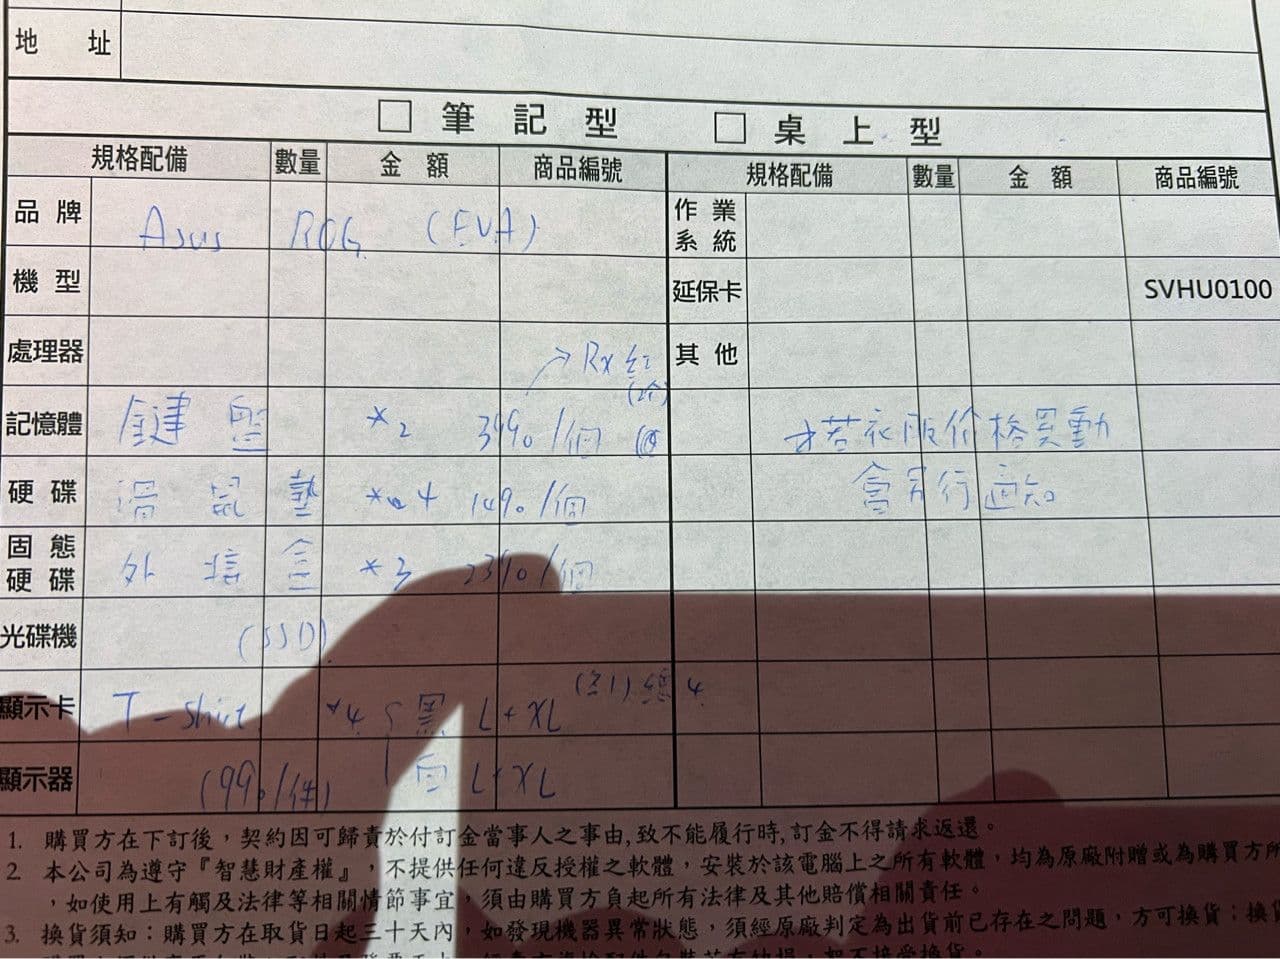 地 址
□ 筆 記 型 □ 桌 上 型
規格配備 數量 金 額 商品編號 規格配備 數量 金 額 商品編號
品 牌 Asus ROG (EVA) 作 業 系 統
機 型 延保卡 SVHU0100
處理器 → Rx 紅 其 他
(2個)
記憶體 鍵 盤 *2 3990/個 *若衣服价格異動
硬 碟 滑 鼠 墊 *4 1490/個 會另行通知
固 態 硬 碟 外 接 盒 *3 2390/個
光碟機 (SSD)
顯示卡 T-shirt *4 黑 L+XL (各1) 總4
顯示器 (990/件) 白 L+XL
1. 購買方在下訂後，契約因可歸責於付訂金當事人之事由,致不能履行時,訂金不得請求返還。
2. 本公司為遵守『智慧財產權』，不提供任何違反授權之軟體，安裝於該電腦上之所有軟體，均為原廠附贈或為購買方所
，如使用上有觸及法律等相關情節事宜，須由購買方負起所有法律及其他賠償相關責任。
3. 換貨須知：購買方在取貨日起三十天內，如發現機器異常狀態，須經原廠判定為出貨前已存在之問題，方可換貨；換貨